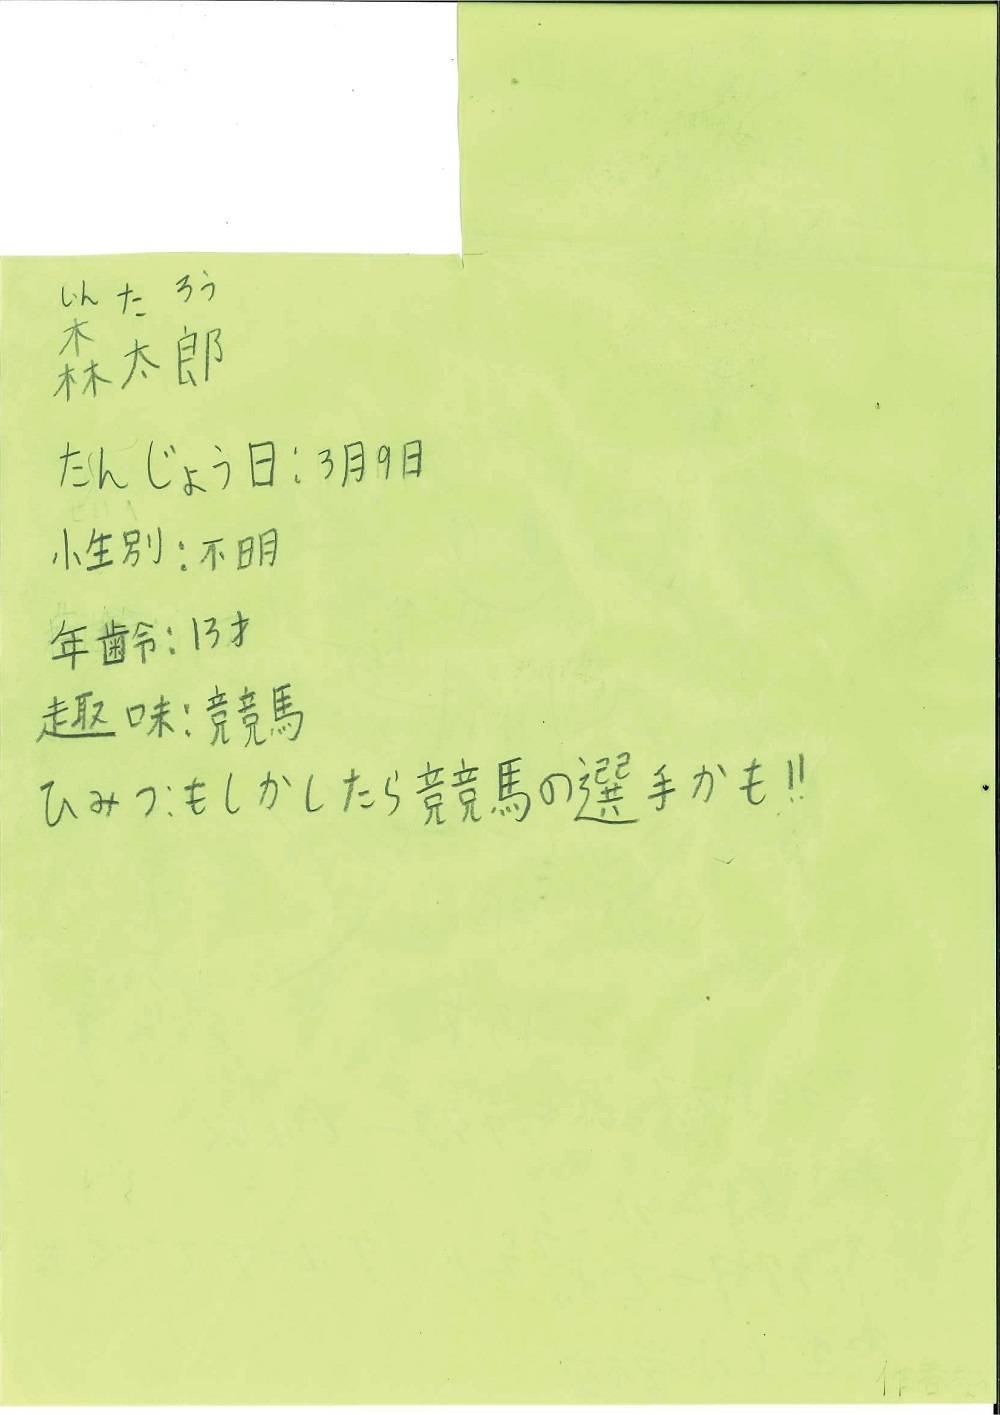 しんたろう
森太郎
たんじょう日:3月9日
性別:不明
年齢:13才
趣味:競馬
ひみつ:もしかしたら競馬の選手かも!!